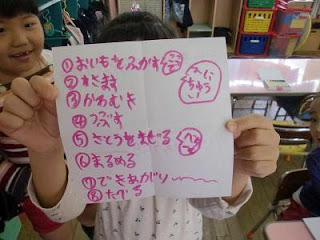 ①おいもをふかす
②さます
③かわむき
④つぶす
⑤さとうをまぜる
⑥まるめる
⑦できあがり
⑧たべる